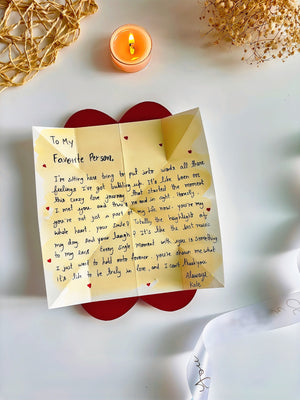 To My
Favorite Person,
I'm sitting here trying to put into words all these
feelings I've got bubbling up. It's like been on
this crazy love journey that started the moment
I met you. and trust me and so right. Honestly,
you're not just a part of my life now. you're my
whole heart. your smile? Totally the highlight of
my day. and your laugh? It's like the best music
to my ears. Every single moment with you is something
I just want to hold onto forever. you've shown me what
it's like to be truly in love, and I can't thank you
Always